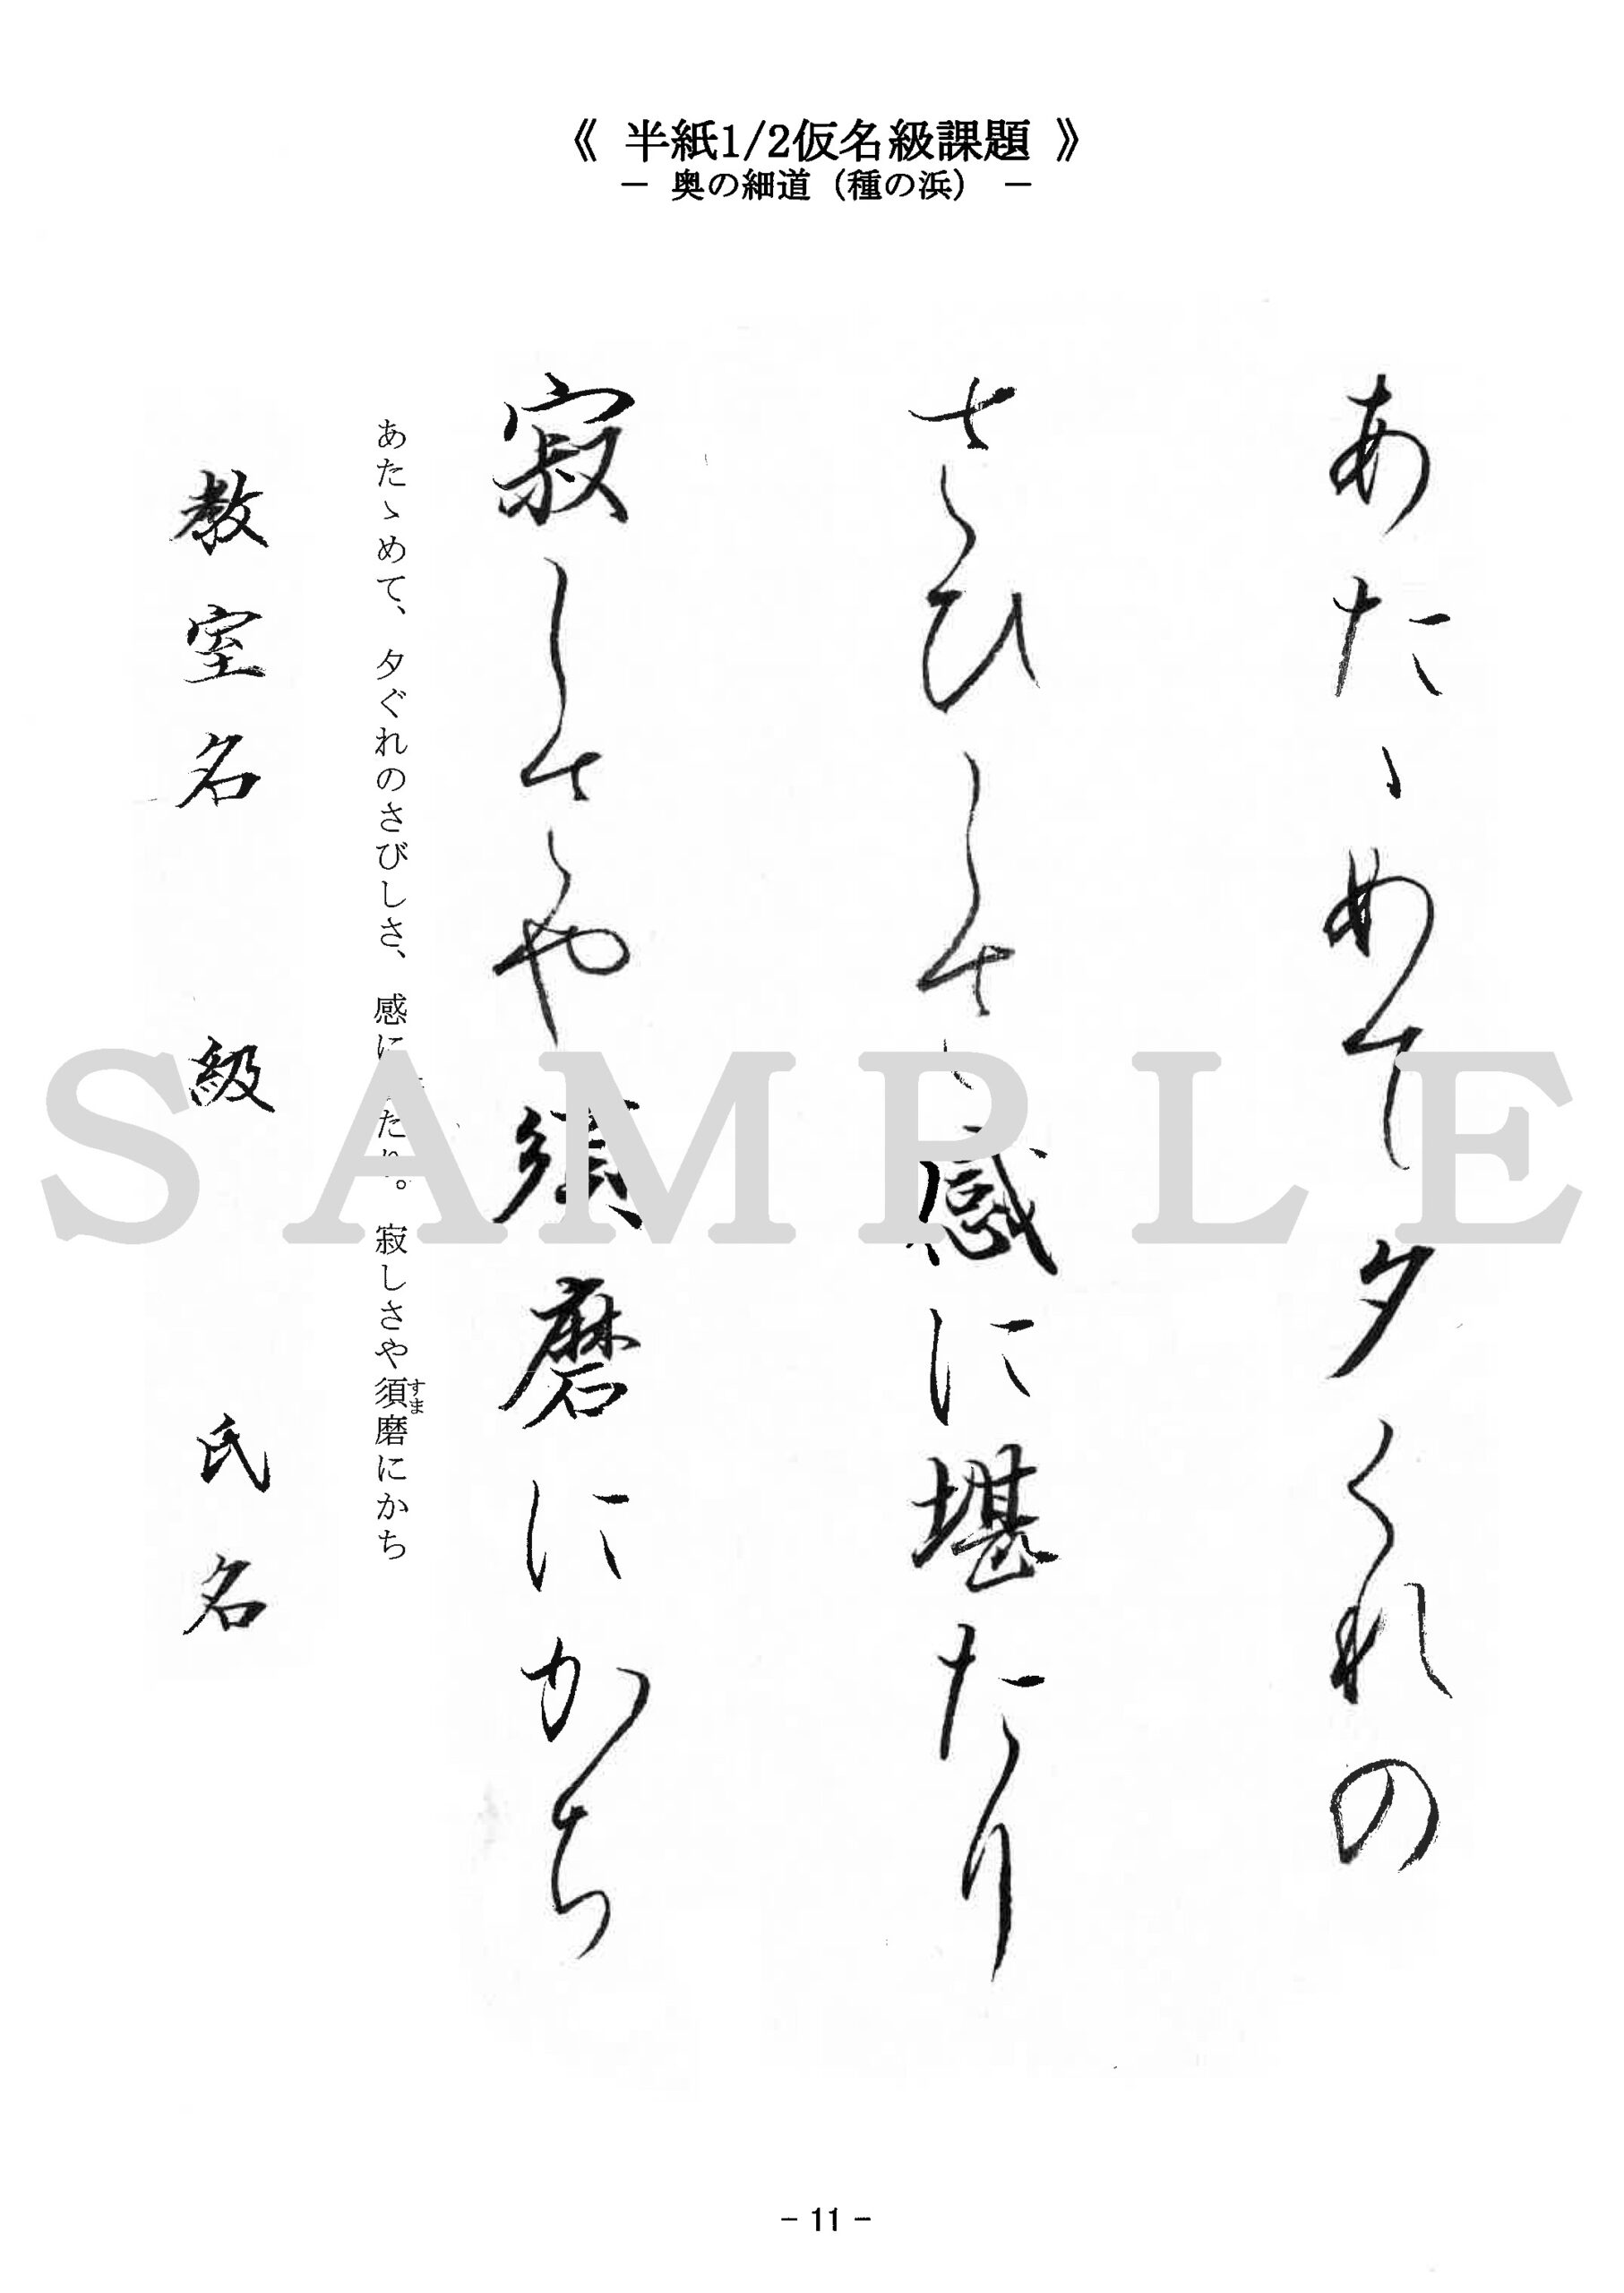 《 半紙1/2仮名級課題 》
－ 奥の細道（種の浜） －
あたゝめて夕くれの
さひしさ感に堪たり
寂しさや須磨にかち
あたゝめて、夕ぐれのさびしさ、感に たり。寂しさや須磨にかち
すま
教室名 級 氏名
SAMPLE
- 11 -